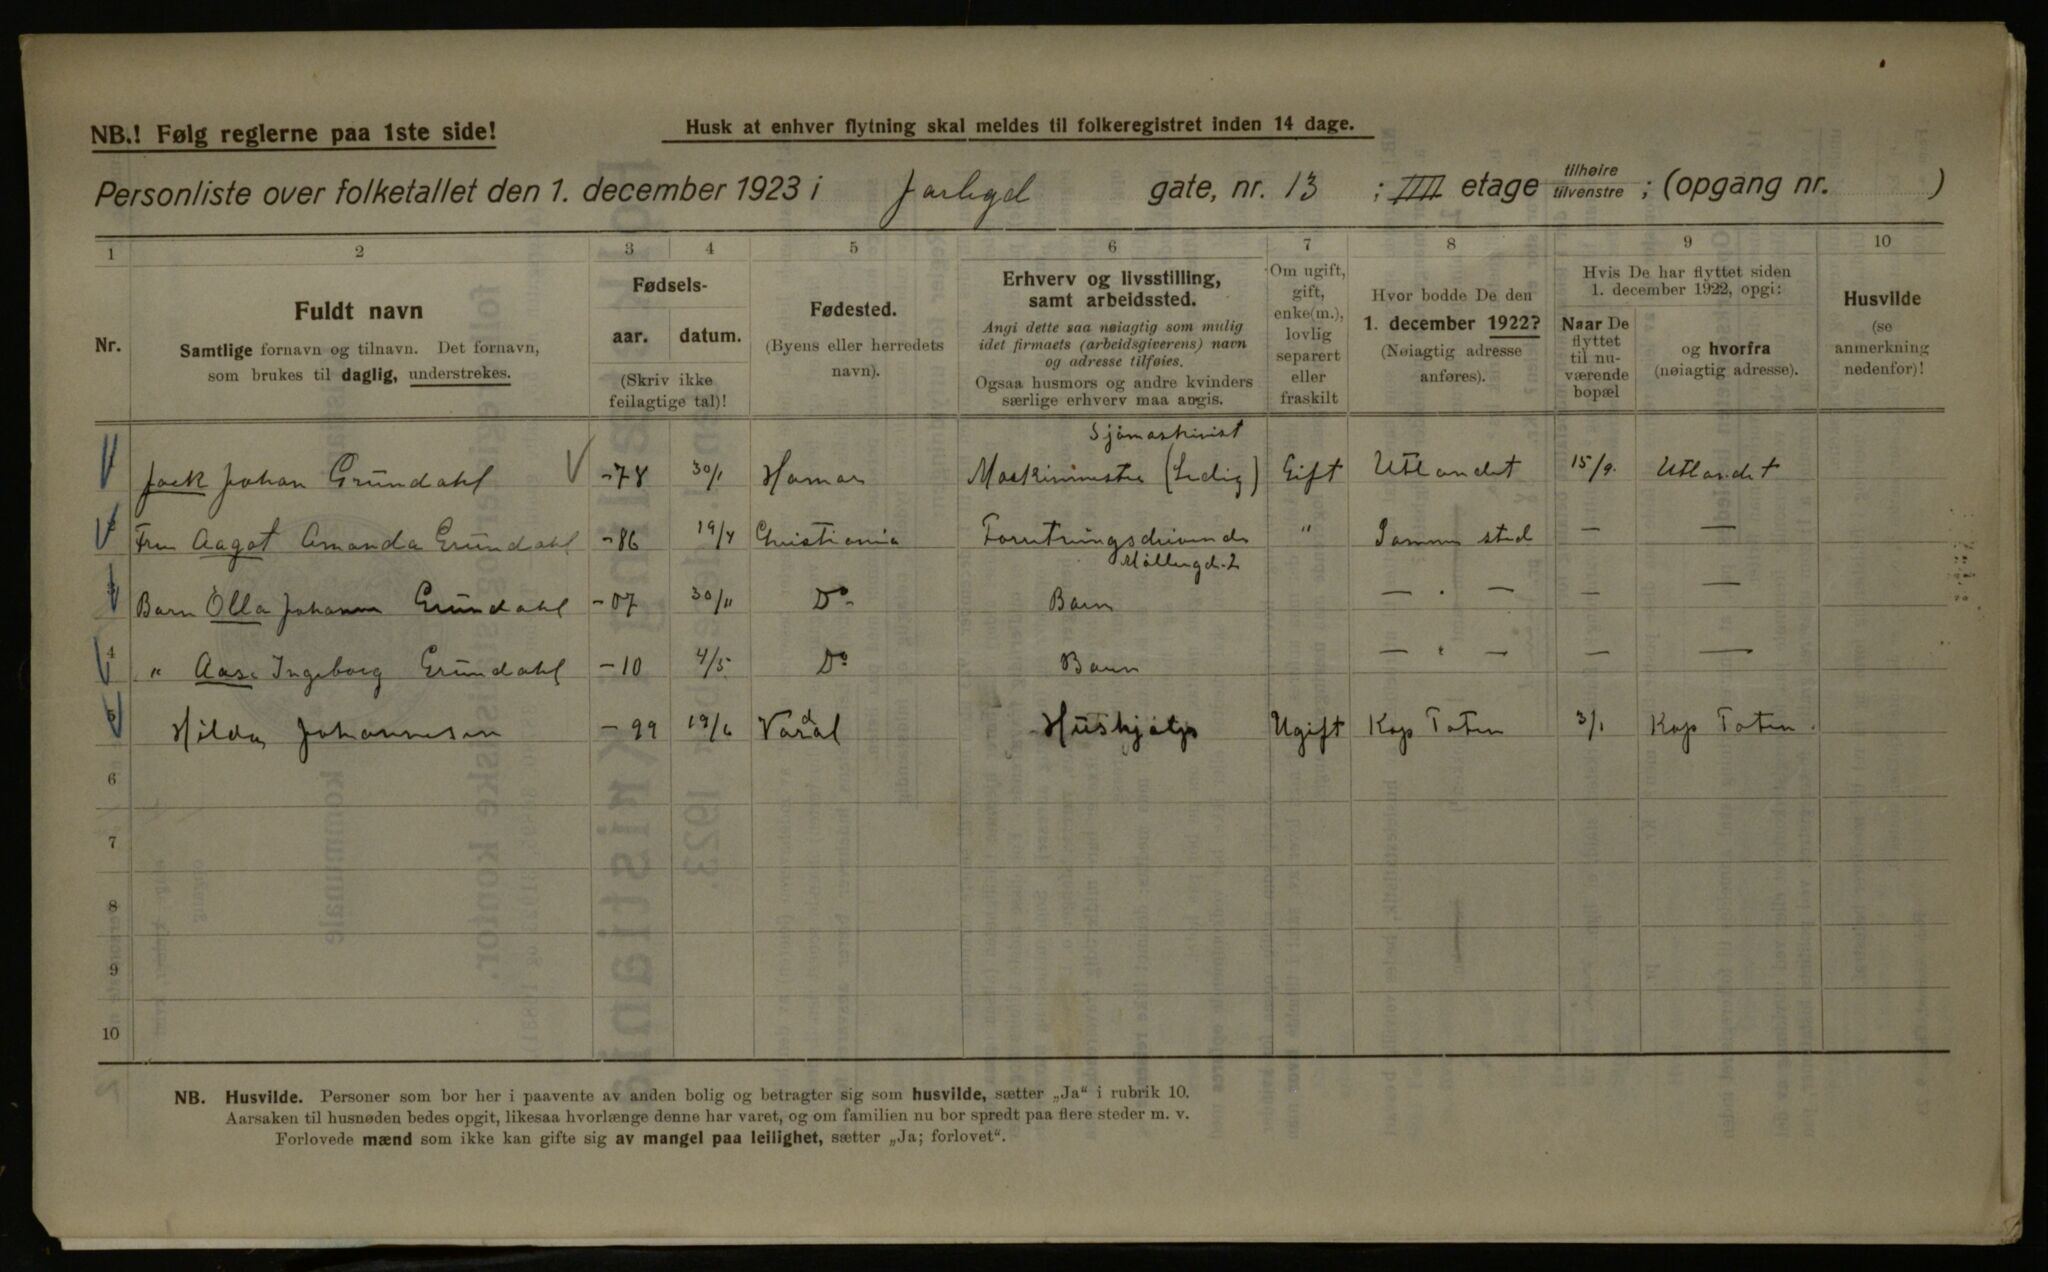 NB.! Følg reglerne paa 1ste side!
Husk at enhver flytning skal meldes til folkeregistret inden 14 dage.
Personliste over folketallet den 1. december 1923 i Jarlsgd gate, nr. 13 ; IIII etage tilhøire tilvenstre ; (opgang nr. )
1 2 3 4 5 6 7 8 9 10
Nr.
Fuldt navn
Samtlige fornavn og tilnavn. Det fornavn,
som brukes til daglig, understrekes.
Fødsels-
aar. datum.
(Skriv ikke
feilagtige tal)!
Fødested.
(Byens eller herredets
navn).
Erhverv og livsstilling,
samt arbeidssted.
Angi dette saa nøiagtig som mulig
idet firmaets (arbeidsgiverens) navn
og adresse tilføies.
Ogsaa husmors og andre kvinders
særlige erhverv maa angis.
Om ugift,
gift,
enke(m.),
lovlig
separert
eller
fraskilt
Hvor bodde De den
1. december 1922?
(Nøiagtig adresse
anføres).
Hvis De har flyttet siden
1. december 1922, opgi:
Naar De
flyttet
til nu-
værende
bopæl
og hvorfra
(nøiagtig adresse).
Husvilde
(se
anmerkning
nedenfor)!
Sjömaskinist
Jack Johan Gründahl -78 30/1 Hamar Maskinmester (Ledig) Gift Utlandet 15/9. Utlandet
2 Fru Aagot Amanda Gründahl -86 19/4 Christiania Forretningsdrivende " Samme sted — —
Möllergd. 2
3 Barn Olla Johanne Gründahl -07 30/11 Do Barn — " — — —
4 " Aase Ingeborg Gründahl -10 4/5 Do Barn — " — — —
5 Hilda Johannesen -99 19/6 Vardal Hushjælp Ugift Kap Toten 3/1 Kap Toten.
6
7
8
9
10
NB. Husvilde. Personer som bor her i paavente av anden bolig og betragter sig som husvilde, sætter „Ja“ i rubrik 10.
Aarsaken til husnøden bedes opgit, likesaa hvorlænge denne har varet, og om familien nu bor spredt paa flere steder m. v.
Forlovede mænd som ikke kan gifte sig av mangel paa leilighet, sætter „Ja; forlovet“.